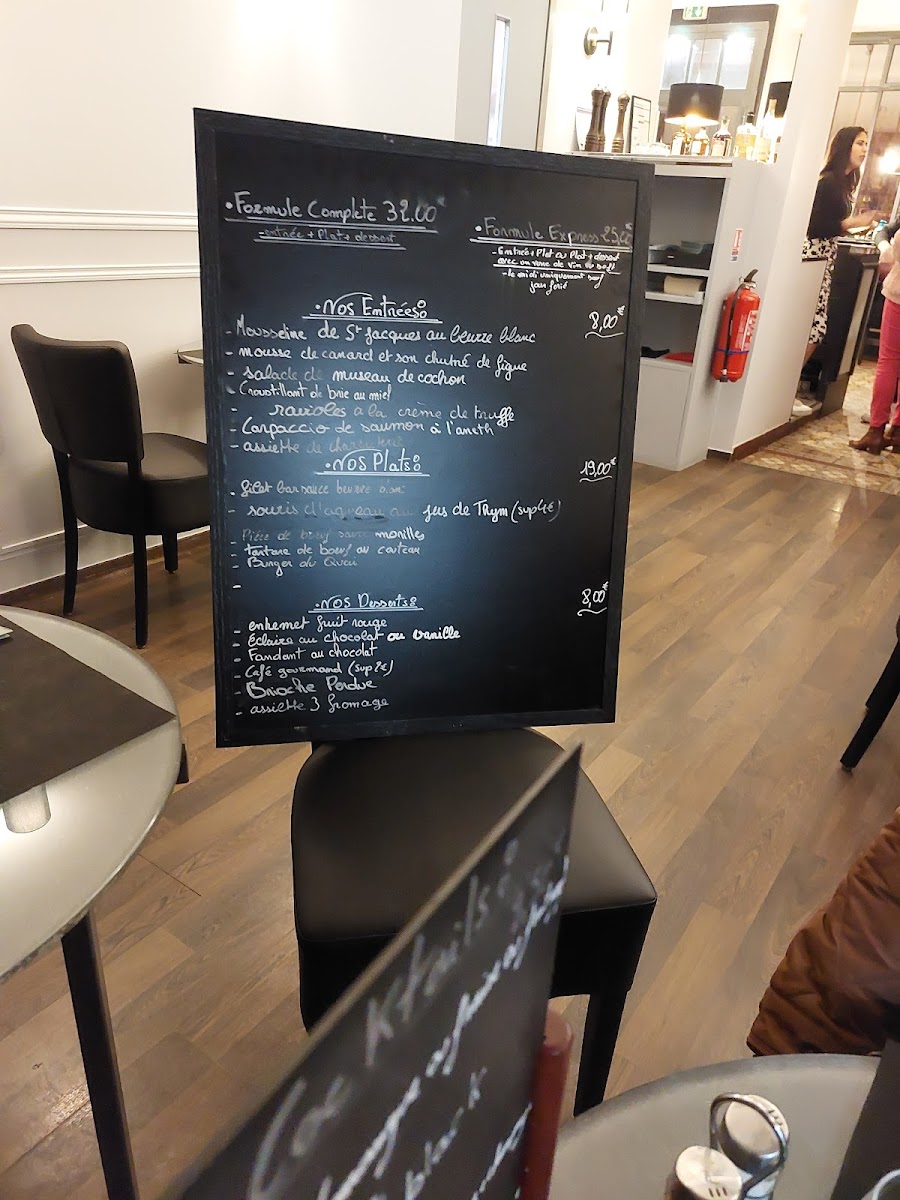 • Formule Complete 32.00€
- entrée + Plat + dessert
• Formule Express 25,00€
- Entrée + Plat ou Plat + dessert
avec un verre de vin ou soft
- le midi uniquement sauf
jour férié
• Nos Entrées
8,00€
- Mousseline de St Jacques au beurre blanc
- mousse de canard et son chutné de figue
- salade de museau de cochon
- Croustillant de brie au miel
- ravioles a la crème de truffe
- Carpaccio de saumon à l'aneth
- assiette de charcuterie
• Nos Plats
19,00€
- filet bar sauce beurre blanc
- souris d'agneau au jus de Thym (sup4€)
- Pièce de bœuf sauce morilles
- tartare de bœuf au couteau
- Burger du Quai
-
• Nos Desserts
8,00€
- entremet fruit rouge
- Éclaire au chocolat ou vanille
- Fondant au chocolat
- Café gourmand (sup2€)
- Brioche Perdue
- assiette 3 fromage